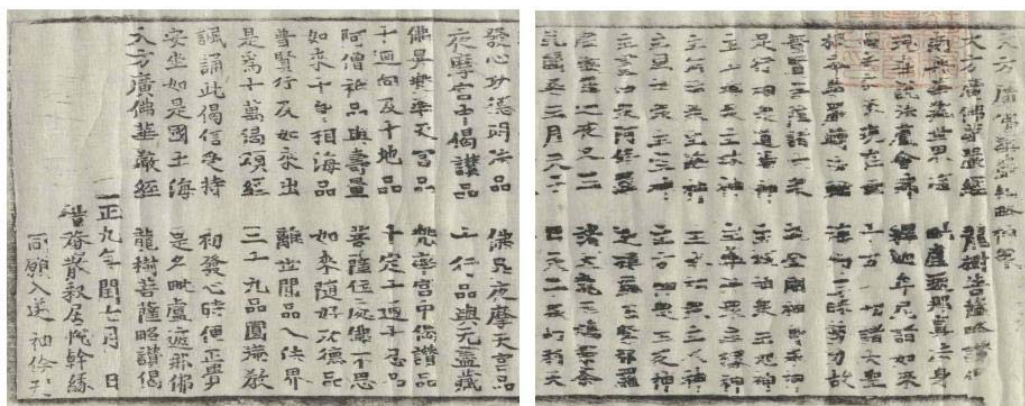 大方廣佛華嚴經略纂偈
大方廣佛華嚴經 龍樹菩薩略讚偈
南無華藏世界海 毗盧遮那眞法身
現在說法盧舍那 釋迦牟尼諸如來
過去未來現在世 十方一切諸大聖
根本華嚴轉法輪 海印三昧勢力故
普賢菩薩諸大衆 執金剛神身衆神
足行神衆道場神 主城神衆主地神
主山神衆主林神 主藥神衆主稼神
主河神衆主海神 主水神衆主火神
主風神衆主空神 主方神衆主夜神
主晝神衆阿修羅 迦樓羅王緊那羅
摩睺羅伽夜叉王 諸大龍王鳩槃茶
乾闥婆王月天子 日天子衆忉利天
發心功德明法品 佛昇夜摩天宮品
夜摩宮中偈讃品 十行品與无盡藏
佛昇兜率天宮品 兜率宮中偈讃品
十迴向及十地品 十定十通十忍品
阿僧祇品與壽量 菩薩住處佛不思
如來十身相海品 如來随好功德品
普賢行及如來出 離世間品入法界
是爲十萬偈頌經 三十九品圓滿教
諷誦此偈信受持 初發心時便正覺
安坐如是國土海 是名毗盧遮那佛
大方廣佛華嚴經 龍樹菩薩略讃偈
正九年閏七月 日
同願入選